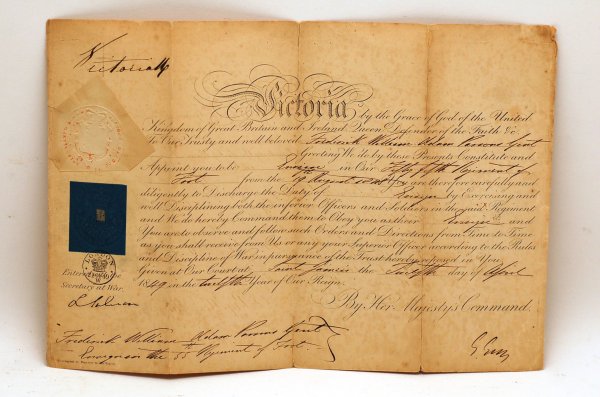 Victoria R
Victoria by the Grace of God of the United
Kingdom of Great Britain and Ireland, Queen, Defender of the Faith &c.
To Our Trusty and well beloved Frederick William Adam Parsons Gent
Greeting We do by these Presents Constitute and
Appoint you to be Ensign in Our Fifty fifth Regiment of
Foot from the 29 August You are therefore carefully and
diligently to Discharge the Duty of Ensign by Exercising and
well Disciplining both the inferior Officers and Soldiers in the said Regiment
and We do hereby Command them to Obey you as their Ensign and
You are to observe and follow such Orders and Directions from Time to Time
as you shall receive from Us or any your Superior Officer according to the Rules
and Discipline of War in pursuance of the Trust hereby reposed in You
Given at Our Court at Saint James's the Twelfth day of April
1849 in the Twelfth Year of Our Reign.
By Her Majesty's Command.
LONDON
Entered
Secretary at War.
Frederick William Adam Parsons Gent
Ensign in the 55th Regiment of Foot